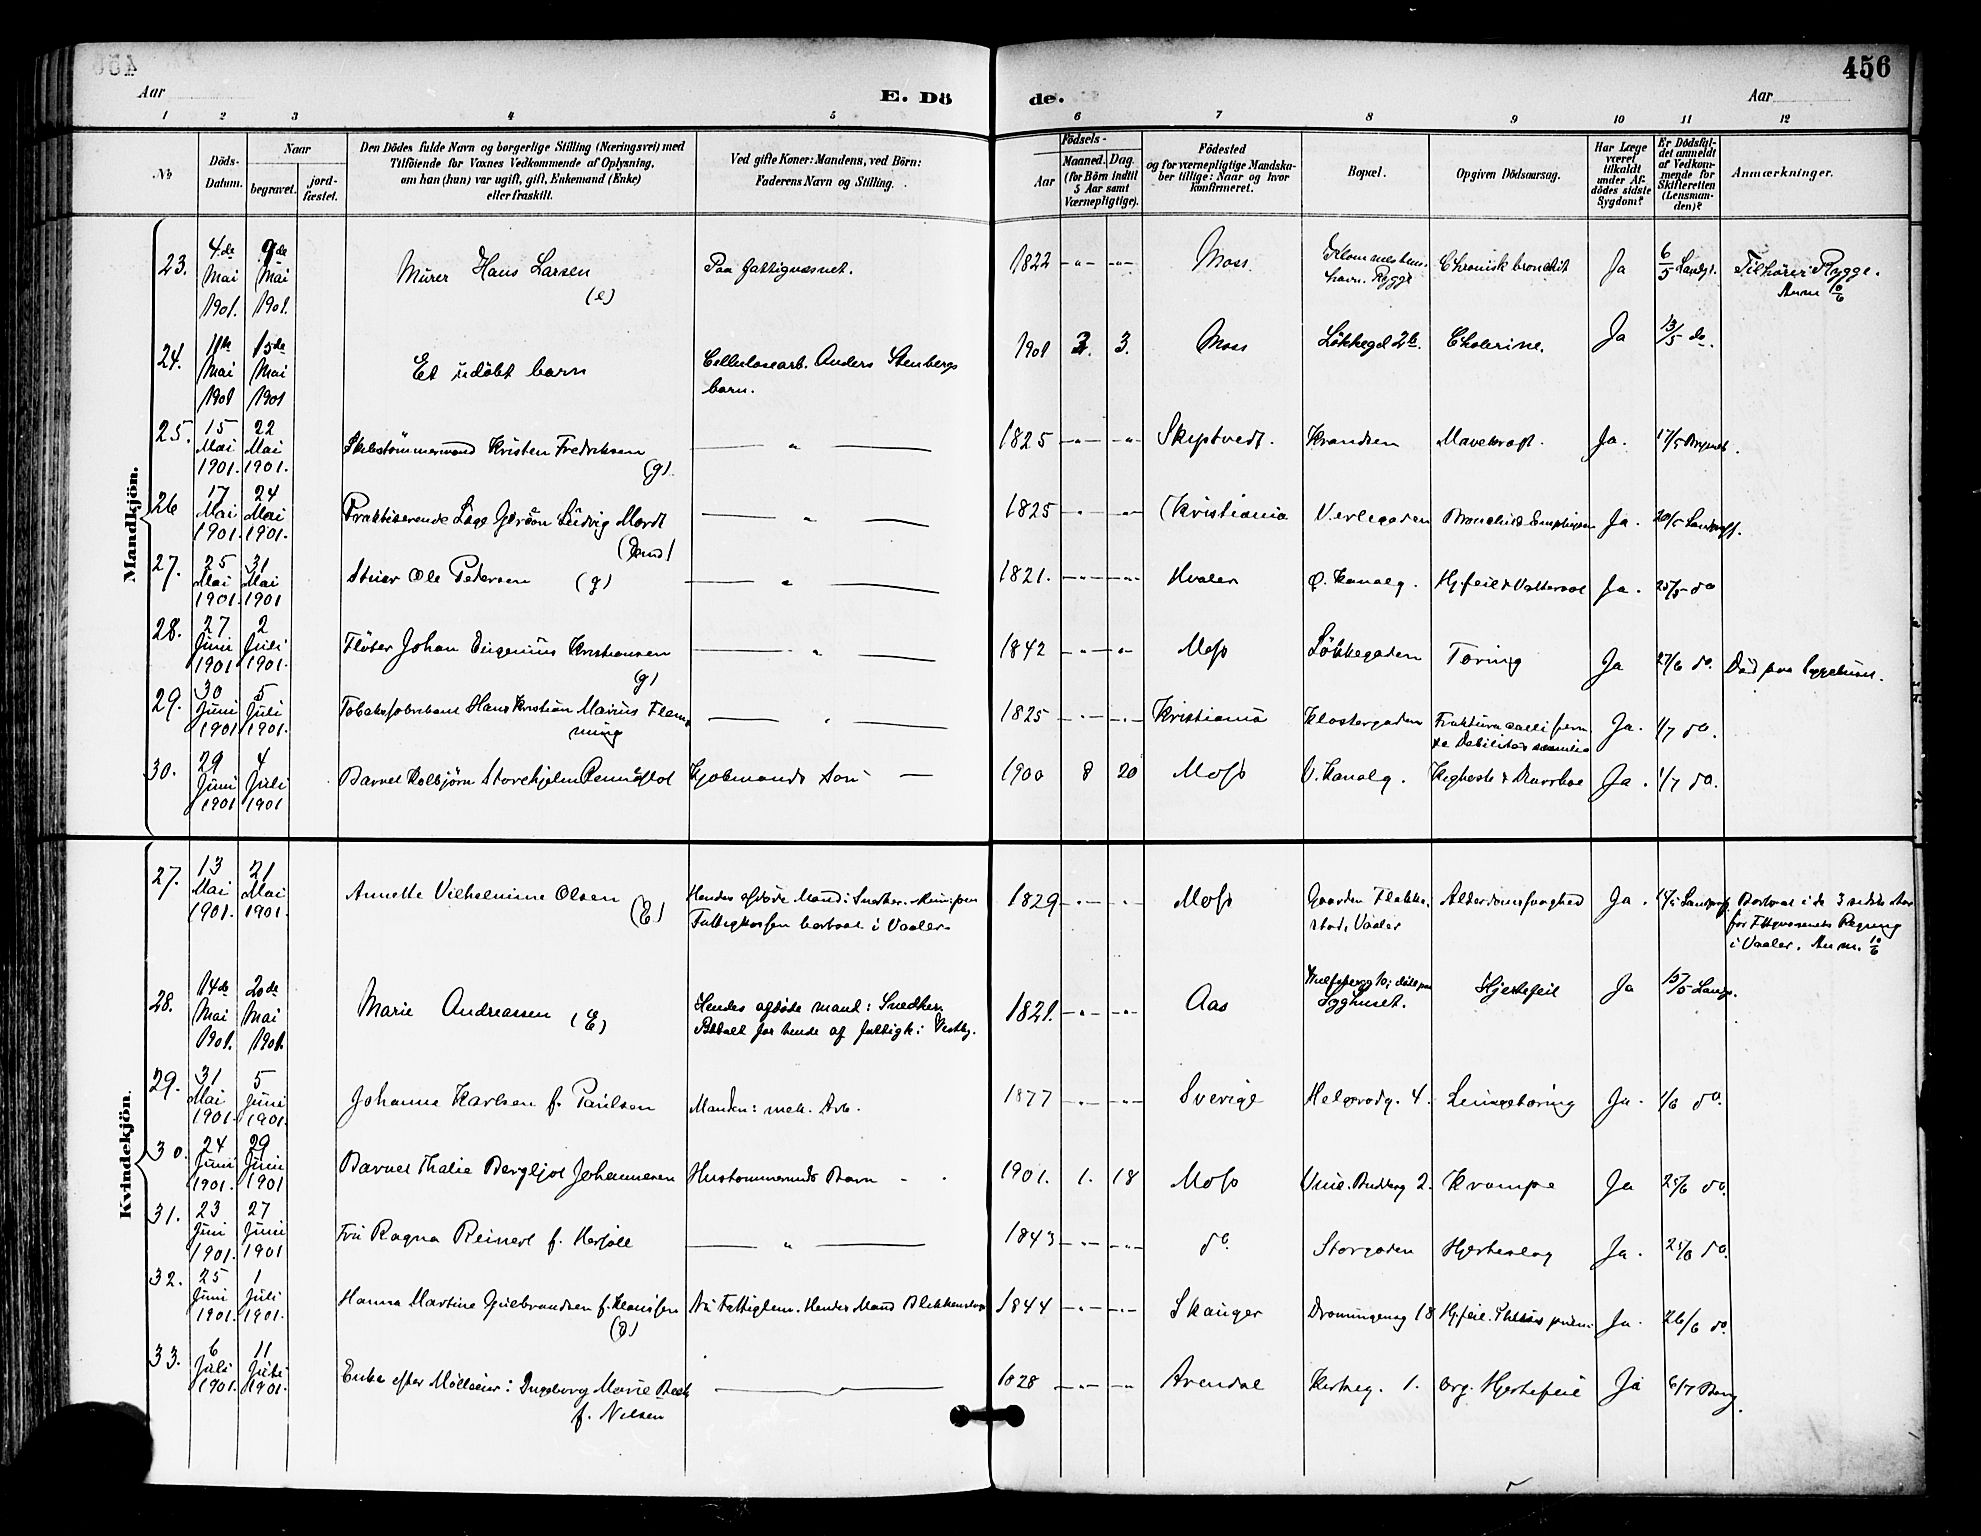 456
Aar
E. Dö
de.
Aar
1 2 3 4 5 6 7 8 9 10 11 12
No
Döds-
Datum.
Naar
begravet.
jord-
fæstet.
Den Dödes fulde Navn og borgerlige Stilling (Næringsvei) med
Tilföiende for Voxnes Vedkommende af Oplysning,
om han (hun) var ugift, gift, Enkemand (Enke)
eller fraskilt.
Ved gifte Koner: Mandens, ved Börn:
Faderens Navn og Stilling.
Födsels-
Aar
Maaned. Dag.
(for Börn indtil
5 Aar samt
Værnepligtige).
Födested
og for værnepligtige Mandska-
ber tillige: Naar og hvor
konfirmeret.
Bopæl.
Opgiven Dödsaarsag.
Har Læge
været
tilkaldt
under Af-
dödes sidste
Sygdom?
Er Dödsfal-
det anmeldt
af Vedkom-
mende for
Skifteretten
(Lensman-
den)?
Anmærkninger.
Mandkjön.
23. 4de Mai 1901. 9de Mai 1901. Murer Hans Larsen (e) Paa fattigvæsnet. 1822 -"- -"- Moss. havn. Rygge Chronisk bronchit Ja 6/5 Tilhører Rygge. Anm 10/6
24. 11te Mai 1901 15de Mai 1901 Et udöbt barn Cellulosearb. Anders Stenbergs barn. 1901 2. 3. Moss Løkkegd 26. Cholerine. Ja 13/5 do.
25. 15 Mai 1901. 22 Mai 1901. Skibstömmermand Kristen Fredriksen (g). " 1825 -"- -"- Skiptvedt. Krandsen Mavekræft. Ja. 17/5
26 17 Mai 1901. 24 Mai 1901. Praktiserende Læge Gerson Ludvig Mordt " 1825 - " - -"- Kristiania Verlegaden Ja. 20/5
27. 25 Mai 1901. 31 Mai 1901 Ole Petersen (g) " 1821. -"- -"- Hvaler Ø. Kanalg. Hj.feil & Vattersot Ja. 25/5 do
28. 27 Juni 1901 2 Juli 1901. Fløter Johan Eugenius Kristiansen (g) " 1842 -"- -"- Moss Løkkegaden Tæring Ja 27/6 do. Død paa Sygehuset.
29. 30 Juni 1901 5 Juli 1901. Tobaksfabrikant Hans Kristian Marius Flem- ming " 1825 -"- -"- Kristiania Klostergaden Ja. 1/7 do.
30. 29 Juni 1901 4 Juli 1901 Barnet Kolbjørn Storehjelm Kjøbmands søn 1900 8 20 Moss V. Kanalg. Kighoste & Ja. 1/7 do.
Kvindekjön.
27. 13 Mai 1901. 21 Mai 1901. Annette Vilhelmine Olsen (E) Hendes afdøde Mand: Snedker. Fattigkassen i Vaaler. 1829 -"- -"- Moss Gaarden Flakke- stad, Vaaler Alderdomssvaghed Ja. i de 3 sidste Aar for Regning i Vaaler. Anm. 10/6
28. 14de Mai 1901. 20de Mai 1901. Marie Andreassen (E) Hendes afdøde mand: Snedker. Betalt for hende af fattigk: Vestby. 1821. -"- -"- Aas Sygehuset. Hjertefeil Ja 15/5
29. 31 Mai 1901. 5 Juni 1901. Johanne Karlsen f. Paulson Manden: mek. Arb. 1877 -"- -"- Sverige Helgerødg. 4. Lungetæring Ja. 1/6 do.
30. 24 Juni 1901. 29 Juni 1901 Barnet Thalie Bergljot Johannesen Hustømmermands Barn 1901. 1. 18 Moss 2. Krampe Ja 25/6 do.
31. 23 Juni 1901. 27 Juni 1901 Fru Ragna Reinert f. " 1843 -"- -"- do. Storgaden Hjerteslag Ja. 25/6 do.
32. 25 Juni 1901. 1 Juli 1901. Hanna Martine Gulbrandsen f. Hansen Nu Fattiglem. Hendes Mand 1844 -"- -"- Skauger Dronningensg 18 Hj.feil. Ja. 26/6 do.
33. 6 Juli 1901. 11 Juli 1901. Enke efter Mølleeier: Ingeborg Marie f. Nilsen 1828 -"- -"- Arendal Kirkeg. 1. Org. Hjertefeil Ja 6/7